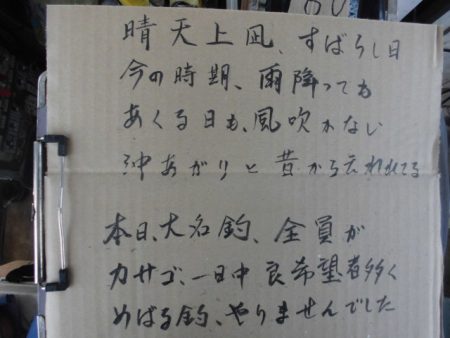 晴天上凪、すばらし日
今の時期、雨降っても
あくる日も、風吹かない
沖あがりと昔から云われてる
本日、大名釣、全員が
カサゴ、一日中良希望者多く
めばる釣、やりませんでした